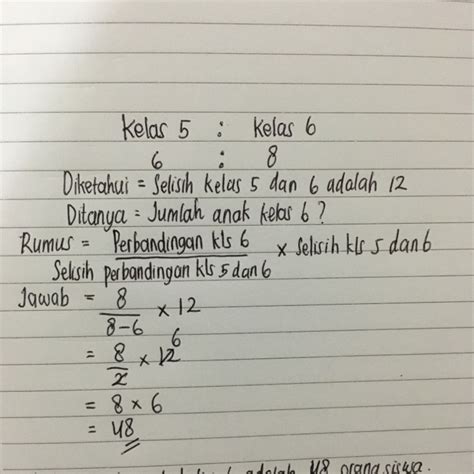 Kelas 5 : Kelas 6
6 : 8
Diketahui = Selisih kelas 5 dan 6 adalah 12
Ditanya = Jumlah anak kelas 6 ?
Rumus = Perbandingan kls 6 × Selisih kls 5 dan 6
Selisih perbandingan kls 5 dan 6
Jawab = 8 × 12
8-6
6
= 8 × 12
2
= 8 × 6
= 48
adalah 48 orang siswa.